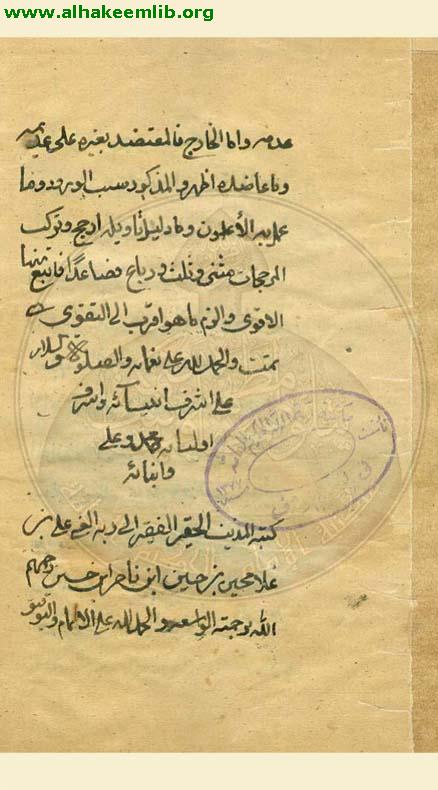 www.alhakeemlib.org
عدمه واما الخارج فالمعتضد بغيره على عديمه
وما عاضده اظهر والمذكور دسبب الورود وما
عمل به الأعلون وما دليل تاويله ارجح وتركب
المرجحات مثنى وثلث ورباع فصاعدا فاتبع
الاقوى والزم ما هو اقرب الى التقوى
تمت والحمد لله على نعمائه والصلوة والسلام
على اشرف انبيائه واشرف
اوليائه محمد وعلى
وابنائه
كتبه المذنب الحقير الفقير الى ربه الغنى على بن
غلامحسين بن حسين ابن ناصر ابن حسن رحمهم
الله برحمته الواسعه والحمد لله على الاتمام والتوفيق